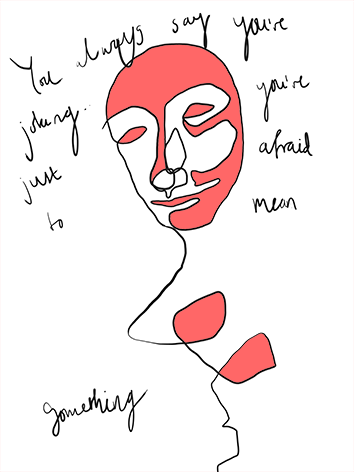 You always say you're
joking.. you're
just afraid
to mean
something